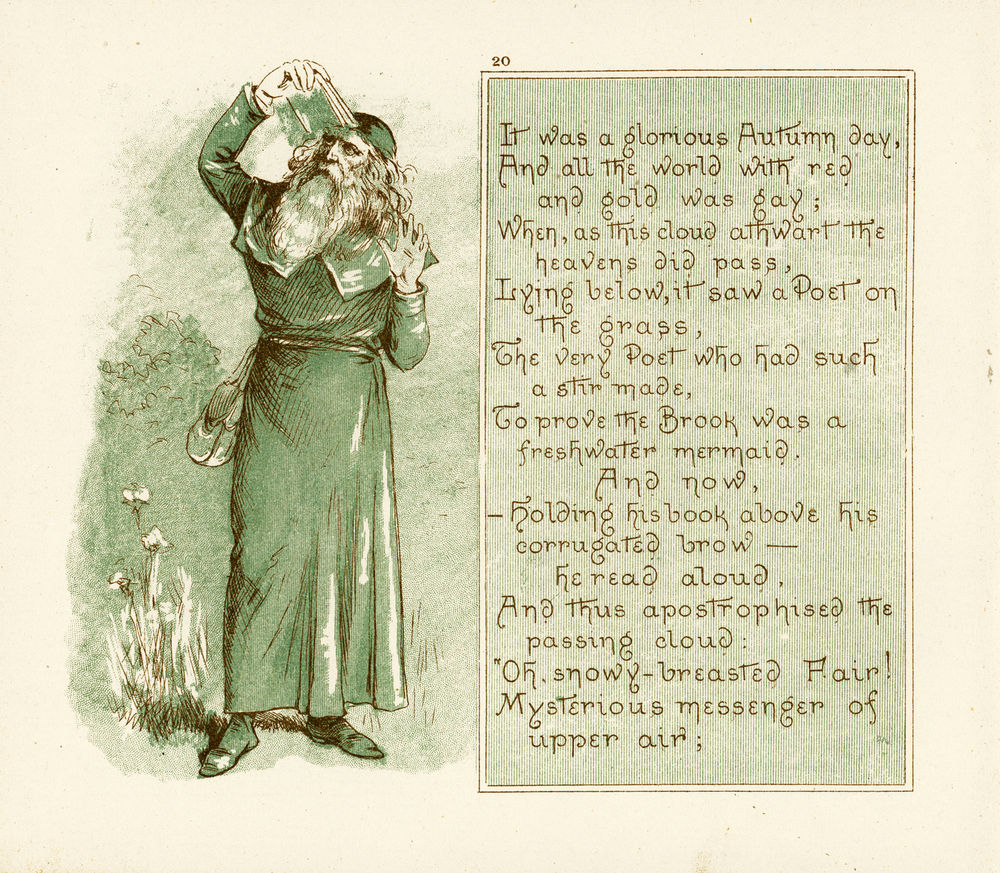 20
It was a glorious Autumn day,
And all the world with red
and gold was gay;
When, as this cloud athwart the
heavens did pass,
Lying below, it saw a Poet on
the grass,
The very Poet who had such
a stir made,
To prove the Brook was a
freshwater mermaid.
And now,
— Holding his book above his
corrugated brow —
he read aloud,
And thus apostrophised the
passing cloud:
"Oh, snowy-breasted Fair!
Mysterious messenger of
upper air;